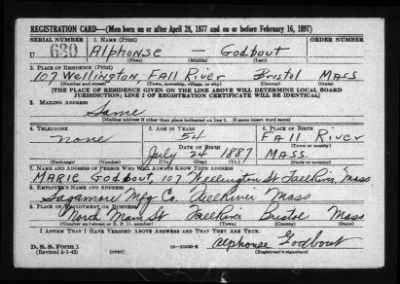 REGISTRATION CARD—(Men born on or after April 28, 1877 and on or before February 16, 1897)
SERIAL NUMBER 1. NAME (Print) ORDER NUMBER
U 630 Alphonse — Godbout
(First) (Middle) (Last)
2. PLACE OF RESIDENCE (Print)
107 Wellington, FALL River Bristol MASS
(Number and street) (Town, township, village, or city) (County) (State)
[THE PLACE OF RESIDENCE GIVEN ON THE LINE ABOVE WILL DETERMINE LOCAL BOARD
JURISDICTION; LINE 2 OF REGISTRATION CERTIFICATE WILL BE IDENTICAL]
3. MAILING ADDRESS
Same
[Mailing address if other than place indicated on line 2. If same insert word same]
4. TELEPHONE 5. AGE IN YEARS 6. PLACE OF BIRTH
none 54 FALL River
DATE OF BIRTH (Town or county)
July 24 1887 MASS.
(Exchange) (Number) (Mo.) (Day) (Yr.) (State or country)
7. NAME AND ADDRESS OF PERSON WHO WILL ALWAYS KNOW YOUR ADDRESS
MARIE Godbout, 107 Wellington St Fall River, Mass
8. EMPLOYER'S NAME AND ADDRESS
Sagamore Mfg Co. Fall River Mass
9. PLACE OF EMPLOYMENT OR BUSINESS
North Main St Fall River Bristol Mass
(Number and street or R. F. D. number) (Town) (County) (State)
I AFFIRM THAT I HAVE VERIFIED ABOVE ANSWERS AND THAT THEY ARE TRUE.
D. S. S. Form 1
(Revised 4-1-42) (over) Alphonse Godbout
(Registrant's signature)